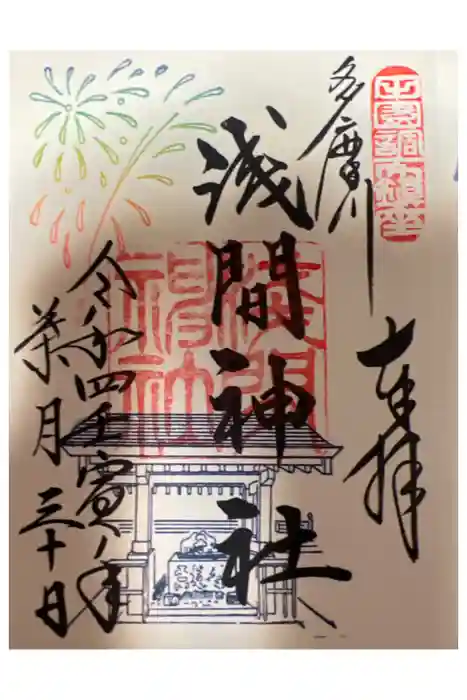 多摩川
奉拝
浅間神社
淺間
神社
令和四壬寅年
葉月三十日